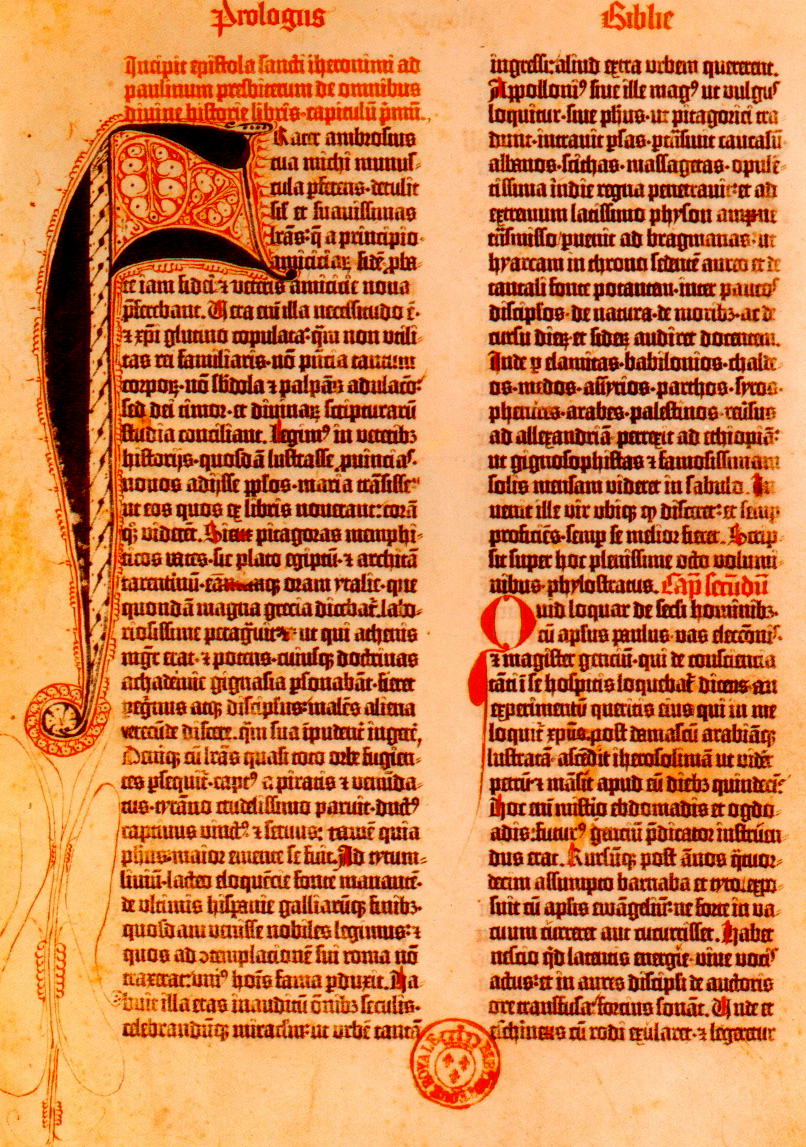 Prologus
Biblie
Incipit epistola sancti iheronimi ad
paulinum presbiterum de omnibus
divine historie libris·capitulū pͥmū.
Frater ambrosius
tua michi munus-
cula pferens·detulit
sil' et suavissimas
lrās·q̄ a principio
amiciciar̨·fidē pba-
te iam fidei ⁊ veteris amicicie noua
pferebant. Uera eni illa necessitudo ē·
⁊ xp̄i glutino copulata·q̄m non vtili-
tas rei familiaris·nō pn̄cia tantum
corpor̨·nō sbdola ⁊ palpās adulaco͛
sed dei timor·et diuinar̨ scripturarū
studia conciliant. Legimꝰ in veteribꝫ
historijs·quosdā lustrasse ꝓuincias·
nouos adijsse pplos·maria trāsisse·
ut eos quos ex libris nouerant:corā
qꝫ viderēt. Sicut pitagoras memphi-
ticos vates·sic plato egiptū·⁊ architā
tarentinū·eamqꝫ oram ytalie·que
quondā magna grecia dicebat̄·labo-
riosissime peragͣuit·ut qui athenis
mgr̄ erat·⁊ potens·cuiusqꝫ doctrinas
achademie gignasia psonabāt·fieret
pegͥnus atqꝫ discipulus:malēs aliena
verecūde discere·qͣm sua īpudent̄ ingerē·
Deniqꝫ cū lrās quasi toto orbe fugien-
tes psequit̄·captꝰ a piratis ⁊ venūda-
tus·tyrāno crudelissimo paruit·ductꝰ
captiuus vinctꝰ ⁊ seruus: tamē quia
phus·maior emente se fuit. Ad tytum-
liuiū·lacteo eloquēcie fonte manantē·
de vltimis hispanie galliarūqꝫ finibꝫ·
quosdam venisse nobiles legimus:⁊
quos ad ɔtemplacionē sui roma nō
traxerat·uniꝰ hoīs fama pduxit. Ha-
buit illa etas inauditū ōnibꝫ seculis·
celebrandūqꝫ miraculū:ut urbē tantā
ingressi:aliud extra urbem quererent.
Appolloniꝰ siue ille magꝰ ut vulgꝰ
loquitur·siue phus·ut pitagorici tra-
dunt·intrauit psas·ptrāsiuit caucasū
albanos·scithas·massagetas·opulē-
tissima indie regna penetrauit:et ad
extremum latissimo physon amne
trāsmisso puenit ad bragmanas·ut
hyarcam in throno sedentē aureo et de
tantali fonte potantem·inter paucos
discipłos·de natura·de moribꝫ·ac de
cursu dier̨ et sider̨ audiret docentem.
Inde p elamitas·babilonios·chalde-
os·medos·assyrios·parthos·syros·
phenices·arabes·palestinos·reūsus
ad allexandriā perrexit ad ethiopiā:
ut gignosophistas ⁊ famosissimam
solis mensam videret in sabulo. In-
uenit ille vir ubiqꝫ qͩ disceret:et semp
proficiēs·semp se melior fieret. Scrip-
sit super hoc plenissime octo volumi-
nibus·phylostratus. Capͫ secūdū
Quid loquar de secli hominibꝫ·
cū apłus paulus·vas eleccōnis
⁊ magister genciū·qui de consciencia
tāti ī se hospitis loquebat̄ dicens·an
experimentū queritis eius qui in me
loquit̄ xpūs·post damascū arabiāqꝫ
lustratā·ascēdit iherosolimā ut vidēt
petrū·⁊ māsit apud eū diebꝫ quindecī·
Hoc eni mistͥio ebdomadis et ogdo-
adis·futurꝰ genciū pͥdicator instruen-
dus erat. Rursūqꝫ post ānos qͣtuor-
decim assumpto barnaba et tyto·expo-
suit cū aplis ewāgeliū:ne forte in va-
cuum curreret aut cucurrisset. Habet
nescio qd latentis energie·viue vocis
actus:et in aures discipłi de auctoris
ore transfusa·forcius sonāt. Unde et
eschines cū rodi exularet·⁊ legeretur